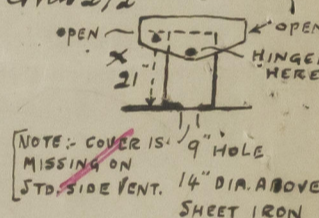 OPEN
OPEN
HINGED
HERE
X
21"
9" HOLE
NOTE:- COVER IS
MISSING ON
STD. SIDE VENT.
14" DIA. ABOVE
SHEET IRON